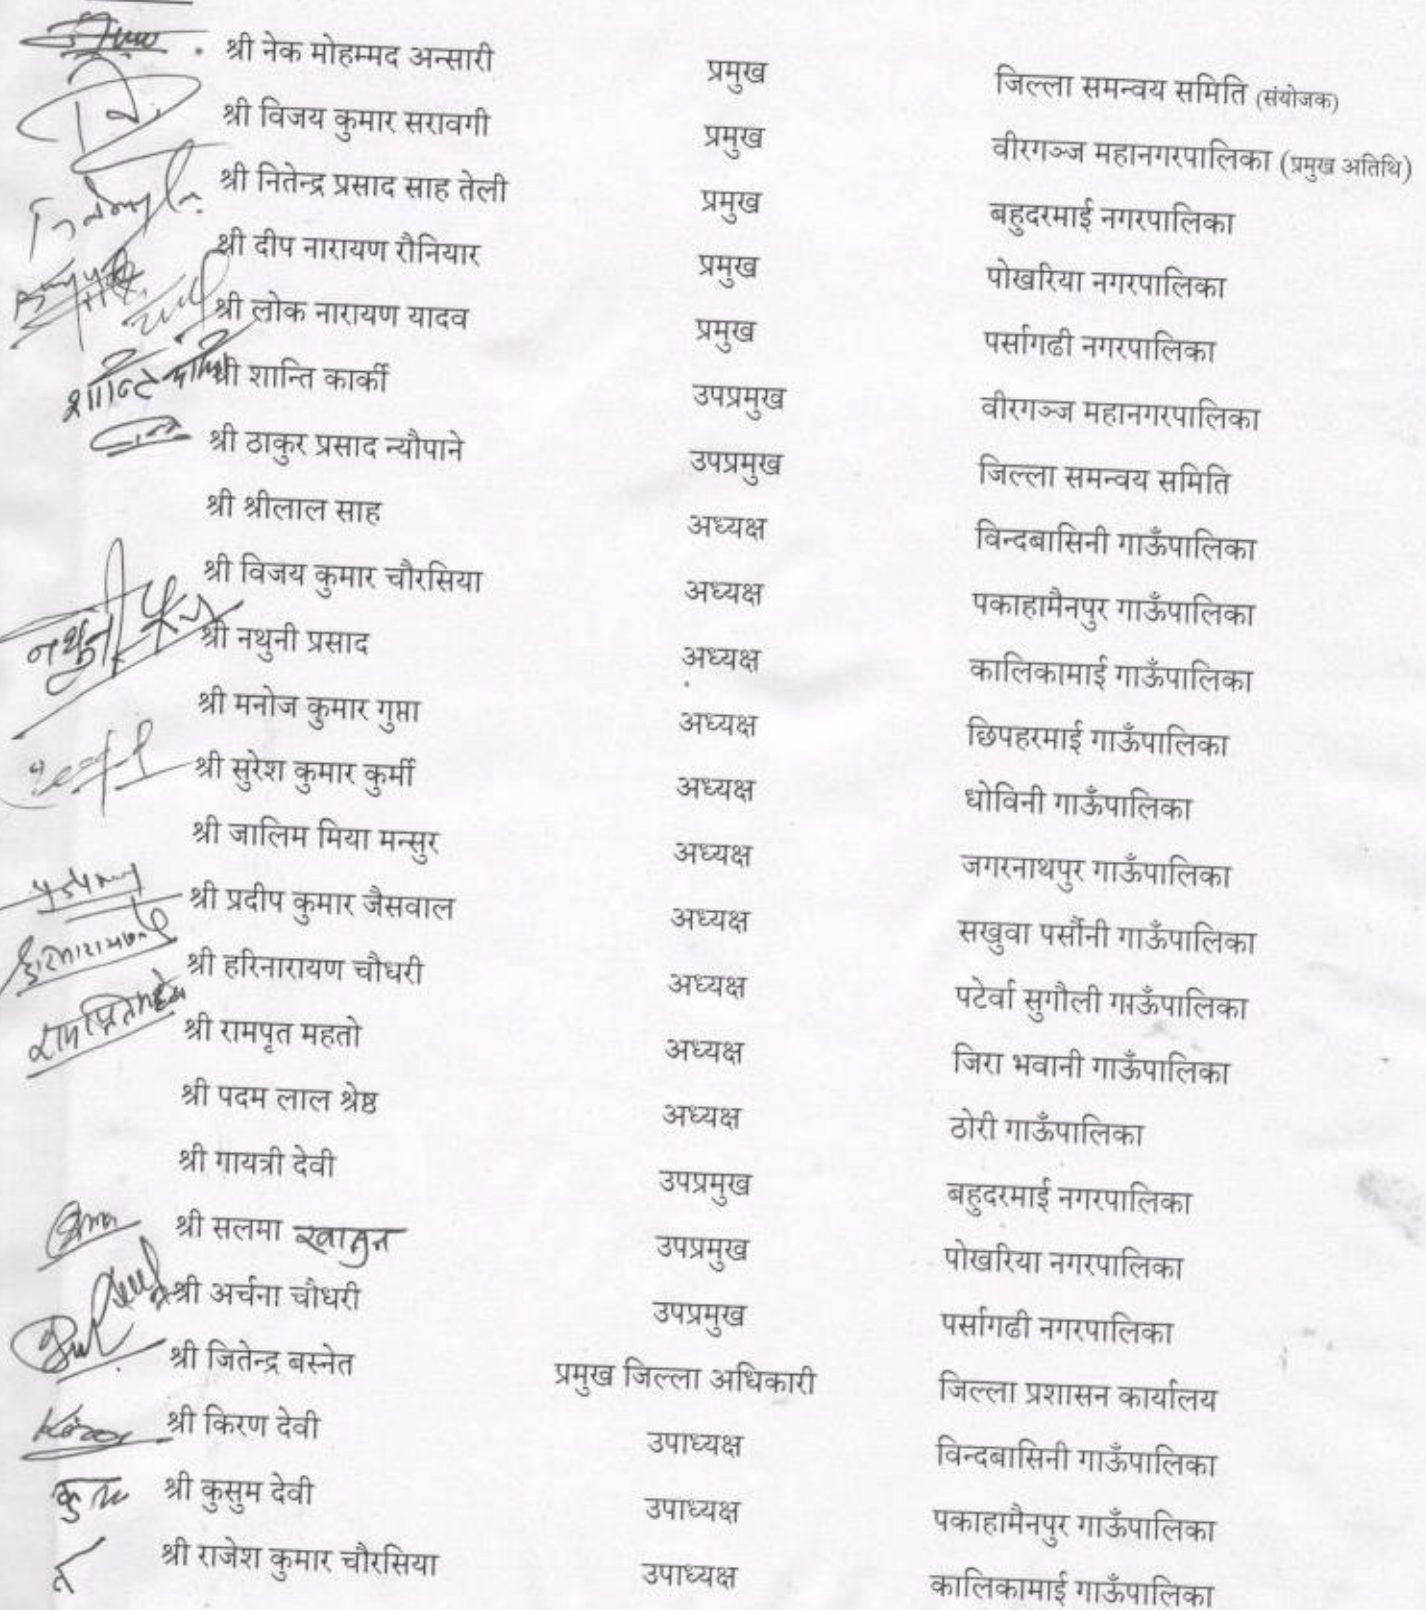 श्री नेक मोहम्मद अन्सारी प्रमुख जिल्ला समन्वय समिति (संयोजक)
श्री विजय कुमार सरावगी प्रमुख वीरगञ्ज महानगरपालिका (प्रमुख अतिथि)
श्री नितेन्द्र प्रसाद साह तेली प्रमुख बहुदरमाई नगरपालिका
श्री दीप नारायण रौनियार प्रमुख पोखरिया नगरपालिका
श्री लोक नारायण यादव प्रमुख पर्सागढी नगरपालिका
श्री शान्ति कार्की उपप्रमुख वीरगञ्ज महानगरपालिका
श्री ठाकुर प्रसाद न्यौपाने उपप्रमुख जिल्ला समन्वय समिति
श्री श्रीलाल साह अध्यक्ष विन्दबासिनी गाऊँपालिका
श्री विजय कुमार चौरसिया अध्यक्ष पकाहामैनपुर गाऊँपालिका
नथुनी श्री नथुनी प्रसाद अध्यक्ष कालिकामाई गाऊँपालिका
श्री मनोज कुमार गुप्ता अध्यक्ष छिपहरमाई गाऊँपालिका
श्री सुरेश कुमार कुर्मी अध्यक्ष धोविनी गाऊँपालिका
श्री जालिम मिया मन्सुर अध्यक्ष जगरनाथपुर गाऊँपालिका
श्री प्रदीप कुमार जैसवाल अध्यक्ष सखुवा पर्सौनी गाऊँपालिका
श्री हरिनारायण चौधरी अध्यक्ष पटेर्वा सुगौली गाऊँपालिका
श्री रामपृत महतो अध्यक्ष जिरा भवानी गाऊँपालिका
श्री पदम लाल श्रेष्ठ अध्यक्ष ठोरी गाऊँपालिका
श्री गायत्री देवी उपप्रमुख बहुदरमाई नगरपालिका
श्री सलमा खातुन उपप्रमुख पोखरिया नगरपालिका
श्री अर्चना चौधरी उपप्रमुख पर्सागढी नगरपालिका
श्री जितेन्द्र बस्नेत प्रमुख जिल्ला अधिकारी जिल्ला प्रशासन कार्यालय
श्री किरण देवी उपाध्यक्ष विन्दबासिनी गाऊँपालिका
श्री कुसुम देवी उपाध्यक्ष पकाहामैनपुर गाऊँपालिका
श्री राजेश कुमार चौरसिया उपाध्यक्ष कालिकामाई गाऊँपालिका